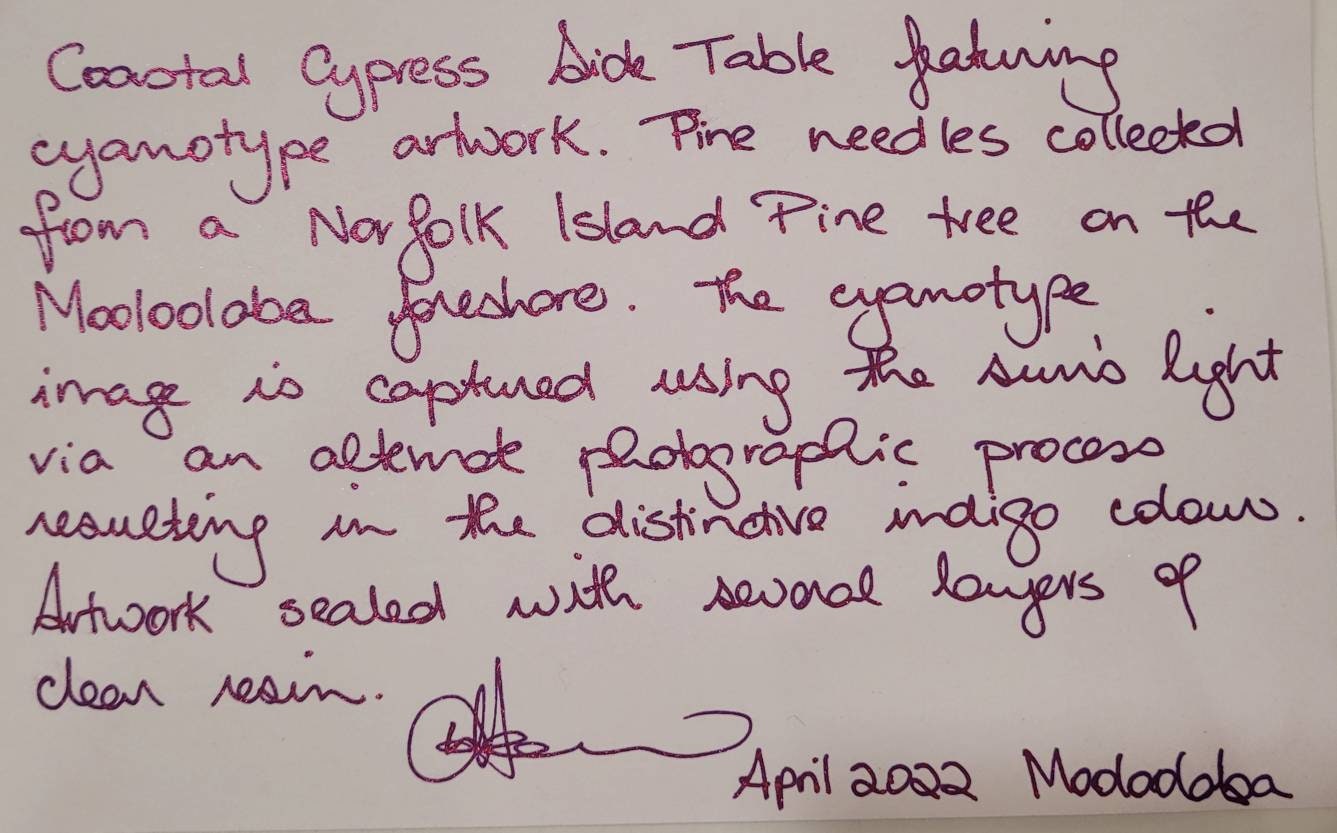 Coastal Cypress Side Table featuring
cyanotype artwork. Pine needles collected
from a Norfolk Island Pine tree on the
Mooloolaba foreshore. The cyanotype
image is captured using the sun's light
via an alternate photographic process
resulting in the distinctive indigo colour.
Artwork sealed with several layers of
clear resin.
April 2022 Mooloolaba